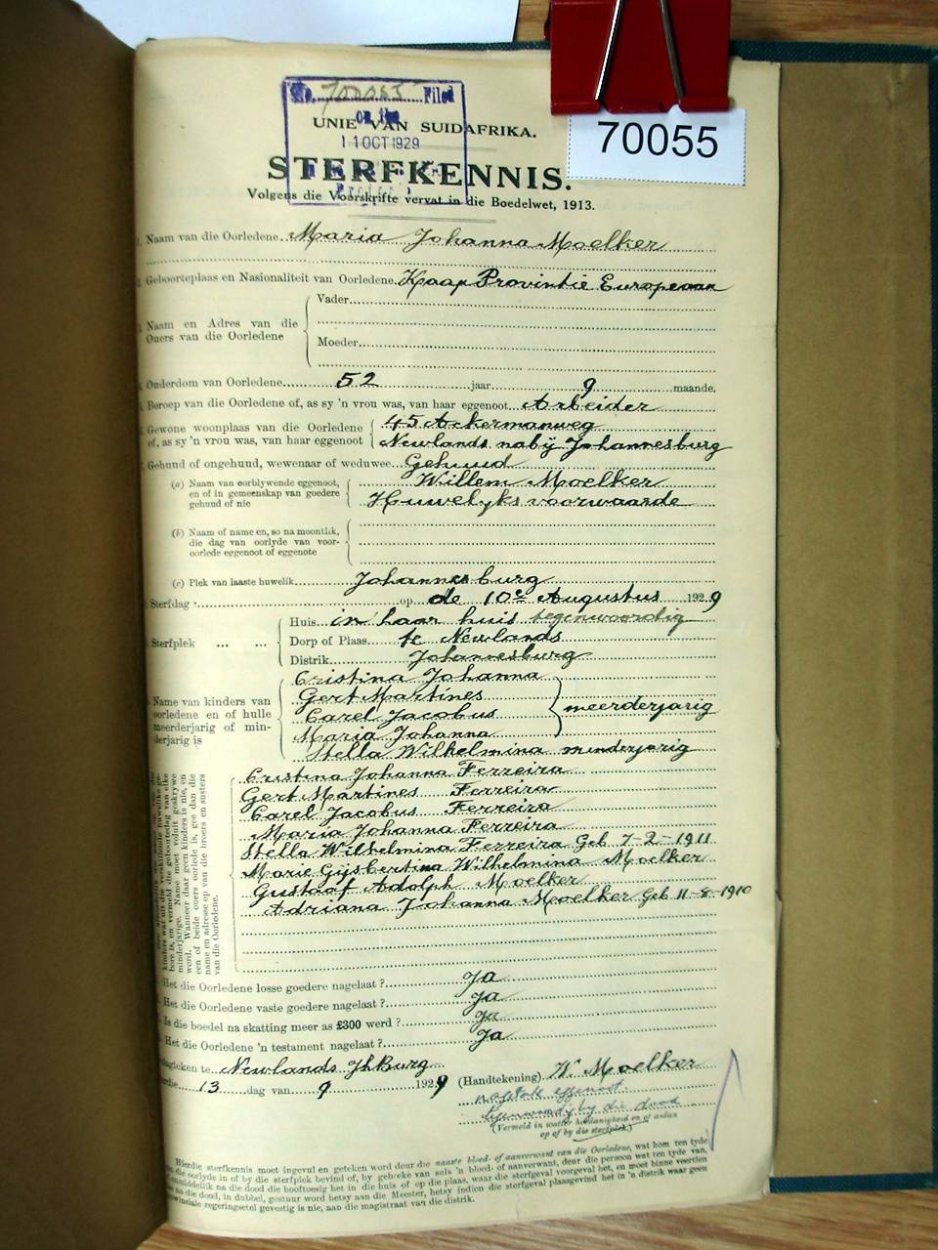 70055
No. 70055 Filed
on the
11 OCT 1929
UNIE VAN SUIDAFRIKA.
STERFKENNIS.
Volgens die Voorskrifte vervat in die Boedelwet, 1913.
Naam van die Oorledene. Maria Johanna Moelker
Geboorteplaas en Nasionaliteit van Oorledene. Kaap Provintie Europeaan
Vader
Naam en Adres van die
Ouers van die Oorledene
Moeder
Ouderdom van Oorledene 52 jaar 9 maande.
Beroep van die Oorledene of, as sy 'n vrou was, van haar eggenoot Arbeider
Gewone woonplaas van die Oorledene 45 Ackermanweg
of, as sy 'n vrou was, van haar eggenoot Newlands nabÿ Johannesburg
Gehuud of ongehuud, wewenaar of weduwee Gehuud
(a) Naam van oorblywende eggenoot, Willem Moelker
en of in gemeenskap van goedere Huwelyks voorwaarde
gehuud of nie
(b) Naam of name en, so na moontlik,
die dag van oorlyde van voor-
oorlede eggenoot of eggenote
(c) Plek van laaste huwelik Johannesburg
Sterfdag op de 10e Augustus 1929
Huis in haar huis tegenwoordig
Sterfplek ... ... Dorp of Plaas te Newlands
Distrik Johannesburg
Cristina Johanna
Name van kinders van Gert Martines
oorledene en of hulle Carel Jacobus meerderjarig
meerderjarig of min- Maria Johanna
derjarig is Stella Wilhelmina minderjarig
Cristina Johanna Ferreira
Gert Martines Ferreira
Carel Jacobus Ferreira
Maria Johanna Ferreira
Stella Wilhelmina Ferreira Geb 7-2-1911
Marie Gijsbertina Wilhelmina Moelker
Gustaaf Adolph Moelker
Adriana Johanna Moelker Geb 11-8-1910
minderjarige. Name moet voluit geskrywe
word. Wanneer daar geen kinders is nie, en
een of beide ouers oorlede is, gee dan die
name en adresse op van die broers en susters
van die Oorledene.
Het die Oorledene losse goedere nagelaat? Ja
Het die Oorledene vaste goedere nagelaat? Ja
Is die boedel na skatting meer as £300 werd? Ja
Het die Oorledene 'n testament nagelaat? Ja
Newlands JhBurg
13 dag van 9 1929 (Handtekening) W Moelker
by die dood
(Vermeld in watter hoedanigheid en of aldan
op of by die sterfplek)
Hierdie sterfkennis moet ingevul en geteken word deur die naaste bloed- of aanverwant van die Oorledene, wat hom ten tyde
die oorlyde in of by die sterfplek bevind of, by gebreke van sels 'n bloed- of aanverwant, deur die persoon wat ten tyde van,
onmiddellik na die dood die hooftoesig het in die huis of op die plaas, waar die sterfgeval voorgeval het, en moet binne veertien
na die dood, in dubbel, gestuur word hetsy aan die Meester, hetsy indien die sterfgeval plaasgevind het in 'n distrik waar geen
regeringsetel gevestig is nie, aan die magistraat van die distrik.